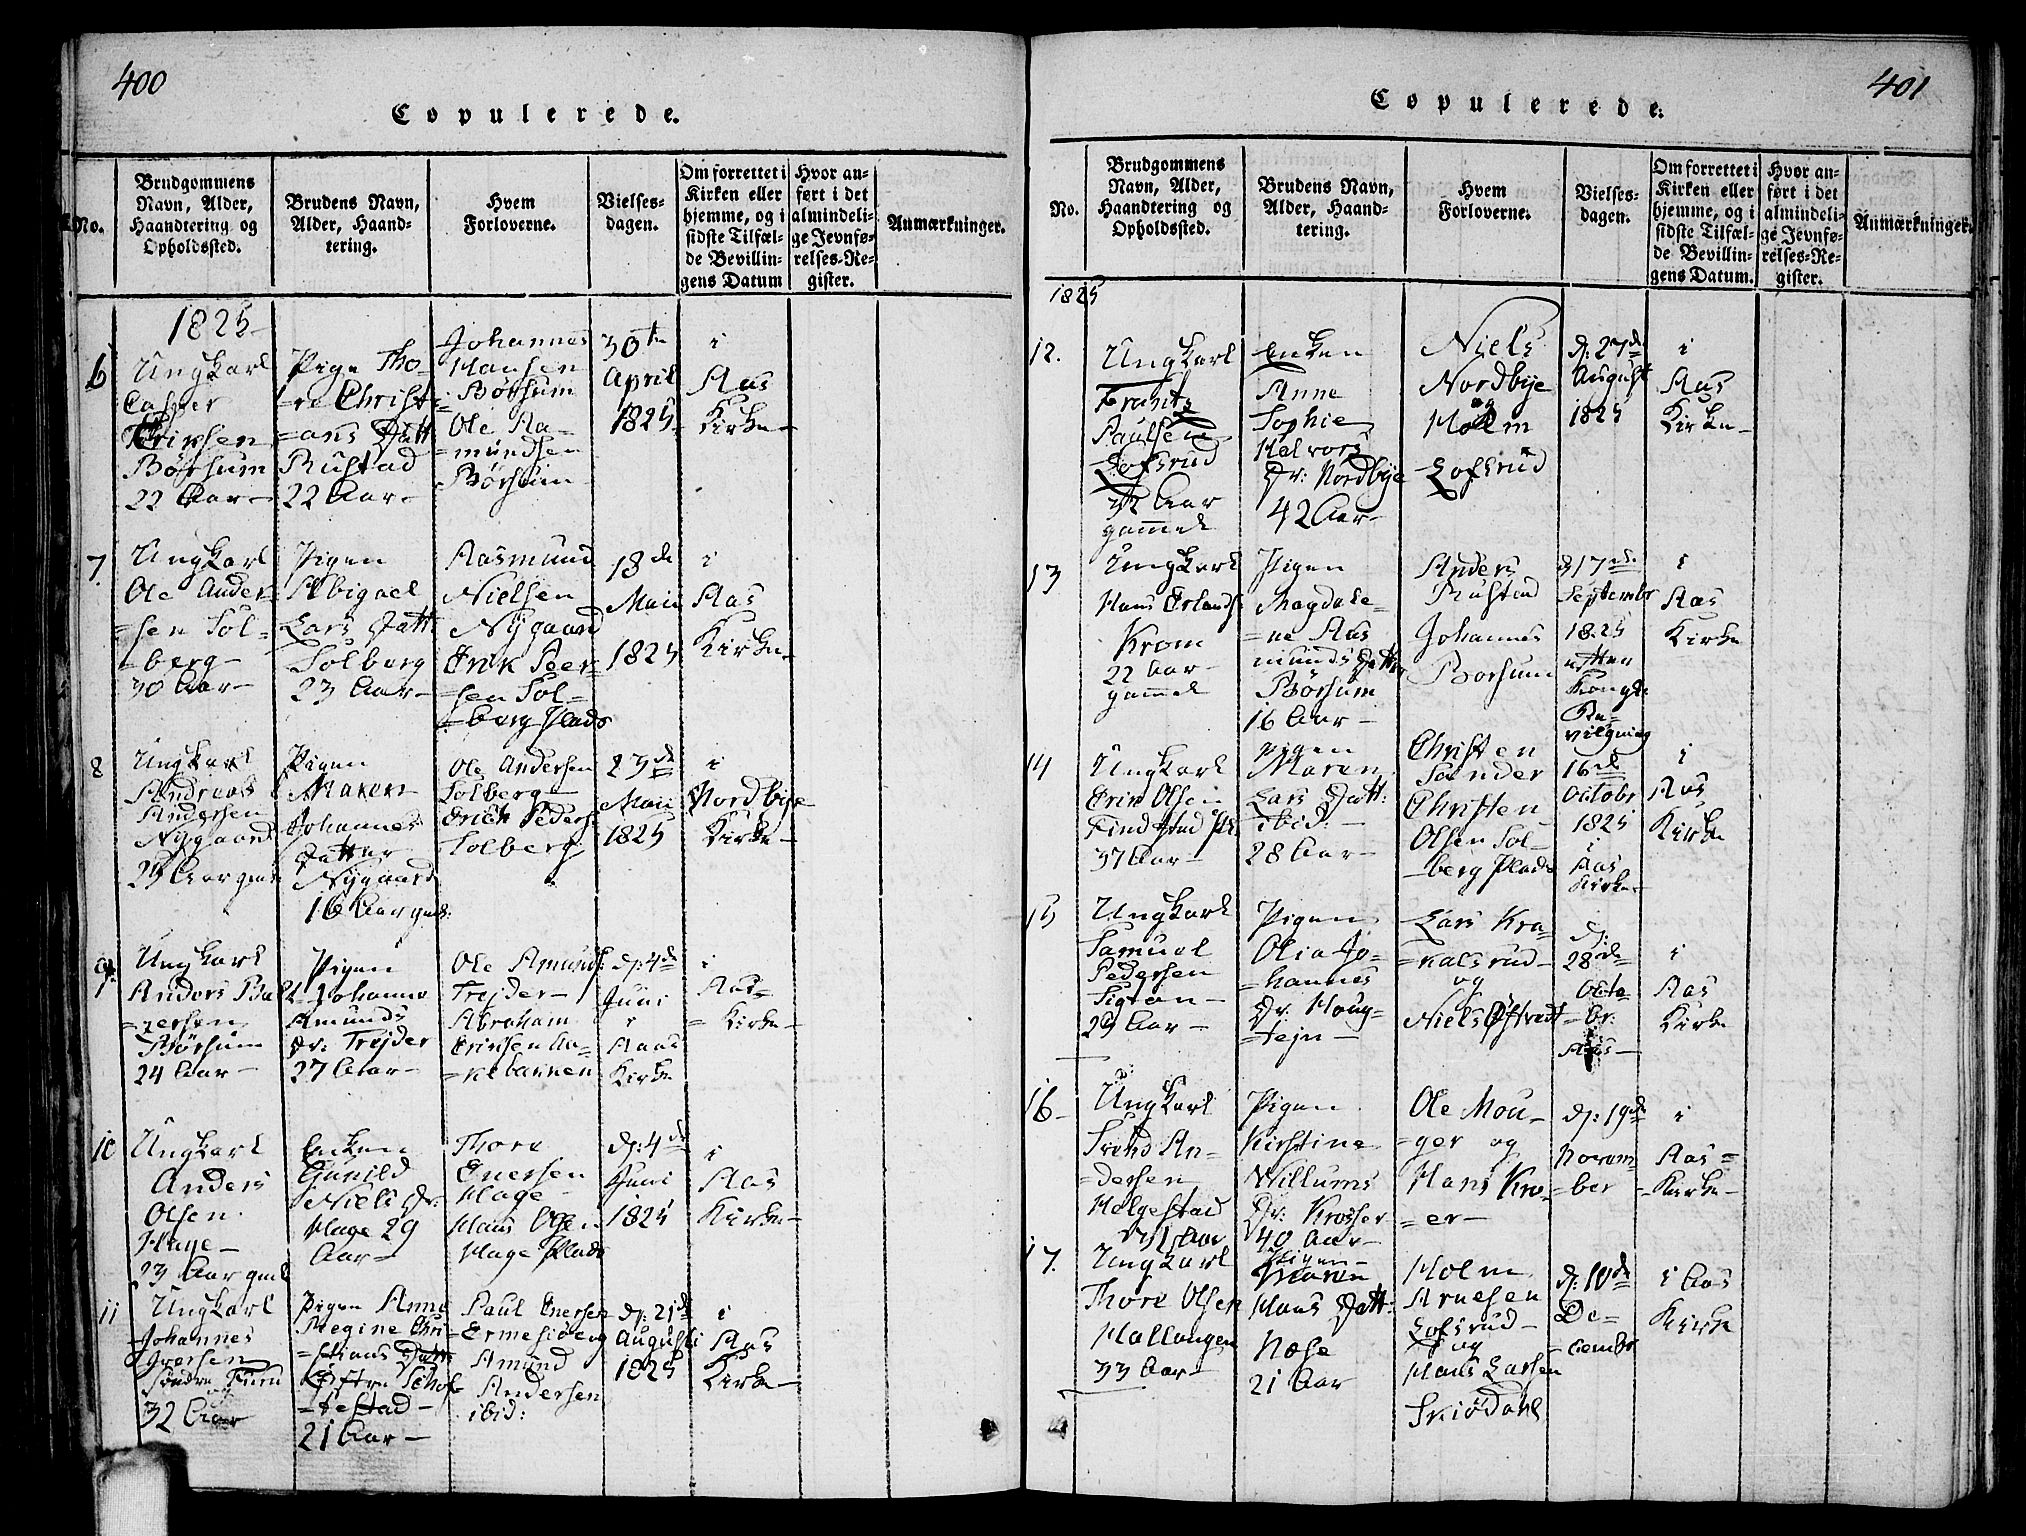 400
Copulerede.
No.
Brudgommens
Navn, Alder,
Haandtering og
Opholdssted.
Brudens Navn,
Alder, Haand-
tering.
Hvem
Forloverne.
Vielses-
dagen.
Om forrettet i
Kirken eller
hjemme, og i
sidste Tilfæl-
de Bevillin-
gens Datum
Hvor an-
ført i det
almindeli-
ge Jevnfø-
relses-Re-
gister.
Anmærkninger.
1825
6
Ungkarl
Casper
Erichsen
Börsum
22 Aar
Pige Tho-
re Christi
=ans Datt
Rustad
22 Aar
Johannes
Hansen
Börsum
Ole Aa-
=mundsen
Börsum
30te
April
1825
i
Aas
Kirke
7
Ungkarl
Ole Ander
=sen Sol-
=berg
30 Aar
Pigen
Abigael
Lars Datt
Solberg
23 Aar
Aasmund
Nielsen
Nygaard
Erik Peer
=sen Sol-
=berg Plads
18de
Maii
1825
i
Aas
Kirke
8
Ungkarl
Andreas
Andersen
Nygaard
Pigen
Maren
Johannes
Datter
Nygaard
16 Aar gml:
Ole Andersen
Solberg
Erich Peders
Solberg
23de
Maii
1825
i
Nordbye
Kirke
9
Ungkarl
Anders Bal
=zersen
Börsum
24 Aar
Pigen
Johanne
Amunds
Dr: Trejder
27 Aar
Ole Amunds:
Trejder
Abraham
Erichsen Aa-
=kebakken
d: 4de
Juni
i
Aaas
Kirke
i
Aas
=Kirke
10
Ungkarl
Anders
Olsen
Hage
23 Aar gml
Enken
Gunild
Niels Dr:
Hage 29
Aar
Thore
Enersen
Hage
Hans Olsen
Hage Plads
d: 4de
Juni
1825
i
Aas
Kirke
11
Ungkarl
Johannes
Iversen
Söndre Furu
32 Aar
Pigen Anne
Regine Chri
=stians Datt
Östre Schof-
=testad
21 Aar
Paul Enersen
Ermesjöeng
Amund
Andersen
ibid:
d: 21de
Augusti
1825
i
Aas
Kirke
401
Copulerede.
No.
Brudgommens
Navn, Alder,
Haandtering og
Opholdssted.
Brudens Navn,
Alder, Haand-
tering.
Hvem
Forloverne.
Vielses-
dagen.
Om forrettet i
Kirken eller
hjemme, og i
sidste Tilfæl-
de Bevillin-
gens Datum.
Hvor an-
ført i det
almindeli-
ge Jevnfø-
relses-Re-
gister.
Anmærkninger.
1825
12.
Ungkarl
Frants
Paulsen
Lofsrud
32 Aar
gammel
Enken
Anne
Sophie
Halvors
Dr: Nordbye
42 Aar
Niels
Nordbye
og
Holm
Lofsrud
d: 27de
August
1825
i
Aas
Kirke
13
Ungkarl
Hans Erlands
Krom
22 Aar
gammel
Pigen
Magdale-
=ne Aas
munds Datter
Börsum
16 Aar
Anders
Rustad
Johannes
Borsum
d 17de
Septembr
1825
efter
Kongl:
Be-
vilgning
i
Aas
Kirke
14
Ungkarl
Erik Olsen
Findstad Pl:
37 Aar
Pigen
Maren
Lars Datt:
ibid:
28 Aar
Christen
Sander
Christen
Olsen Sol-
=berg Plads
16de
Octobr
1825
i
Aas
Kirke
i
Aas
Kirke
15
Ungkarl
Samuel
Pedersen
29 Aar
Pigen
Olia Jo-
=hannes
Dr. Houg-
=tejn
Lars Kra-
=kelsrud
og
Niels Östvedt
d:
28de
Octo-
=br:
Aas
i
Aas
Kirke
16
Ungkarl
Svend An-
=dersen
Holgestad
31 Aar
Pigen
Kirstine
Willums
Dr: Krosser
40 Aar
Ole Mou-
=ger og
Hans Kro-
=er
d: 19de
Novem-
=ber
i
Aas=
=Kirke
17.
Ungkarl
Thore Olsen
Hallangen
33 Aar
Pigen
Maren
Hans Datt:
Nese
21 Aar
Holm
Arnesen
Lofsrud
og
Hans Larsen
Skiödahl
d: 10de
De-
=cembr
i Aas
Kirke